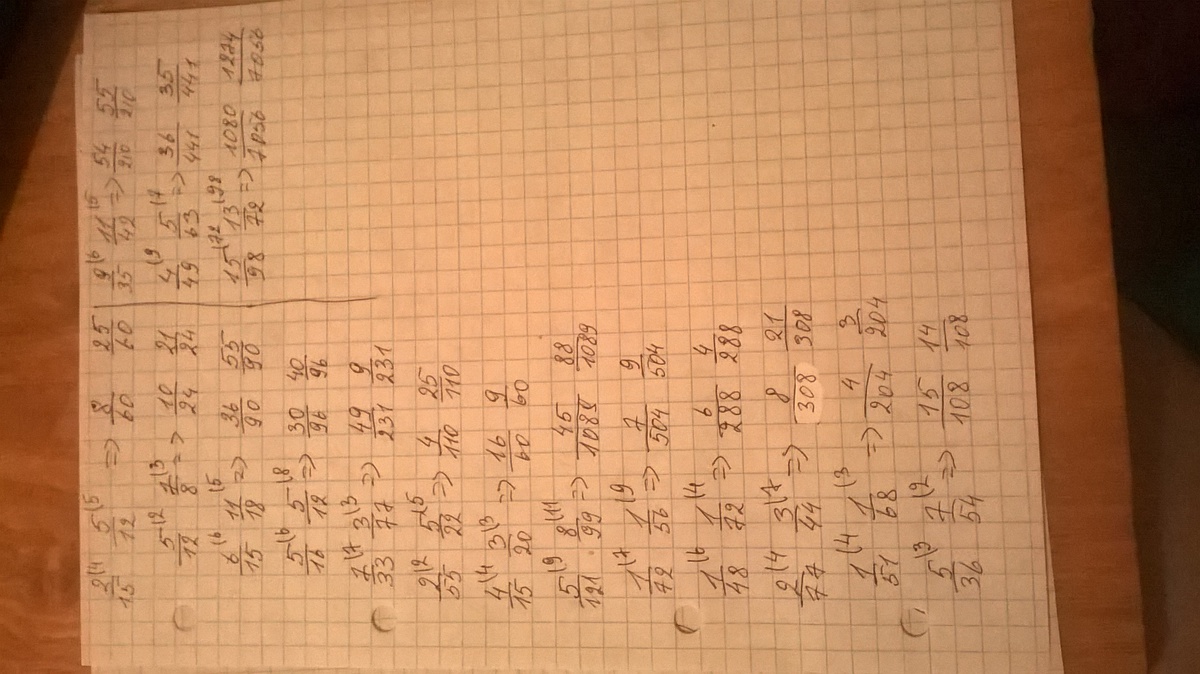 2/15(4 5/12(5 => 8/60 25/60
5/12(2 7/8(3 => 10/24 21/24
6/15(6 11/18(5 => 36/90 55/90
5/16(6 5/12(8 => 30/96 40/96
7/33(7 3/77(3 => 49/231 9/231
2/55(2 5/22(5 => 4/110 25/110
4/15(4 3/20(3 => 16/60 9/60
5/121(9 8/99(11 => 45/1089 88/1089
1/72(7 1/56(9 => 7/504 9/504
1/48(6 1/72(4 => 6/288 4/288
2/77(4 3/44(7 => 8/308 21/308
1/51(4 1/68(3 => 4/204 3/204
5/36(3 7/54(2 => 15/108 14/108
9/35(6 11/42(5 => 54/210 55/210
4/49(9 5/63(7 => 36/441 35/441
15/98(72 13/72(98 => 1080/7056 1274/7056